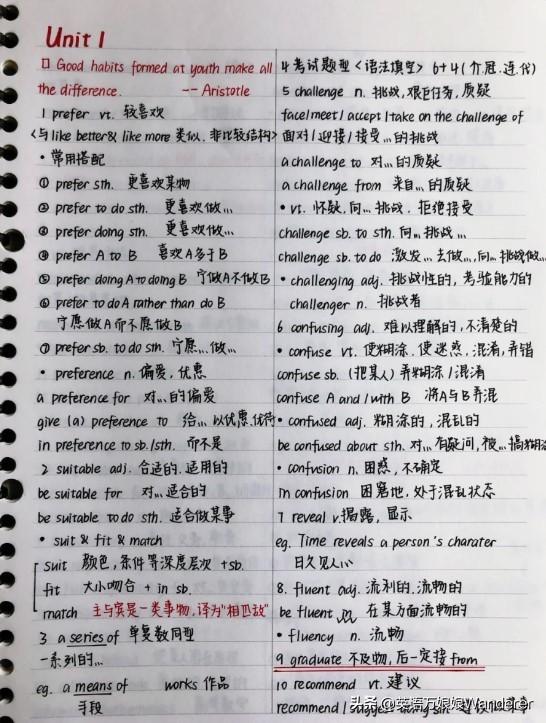 Unit 1
□ Good habits formed at youth make all
the difference. -- Aristotle
1 prefer vt. 较喜欢
<与like better& like more 类似.非比较结构>
• 常用搭配
① prefer sth. 更喜欢某物
② prefer to do sth. 更喜欢做...
③ prefer doing sth. 更喜欢做...
④ prefer A to B 喜欢A多于B
⑤ prefer doing A to doing B 宁做A不做B
⑥ prefer to do A rather than do B
宁愿做A而不愿做B
⑦ prefer sb. to do sth. 宁愿...做...
• preference n. 偏爱,优惠
a preference for 对...的偏爱
give (a) preference to 给...以优惠,优待
in preference to sb./sth. 而不是
2 suitable adj. 合适的.适用的
be suitable for 对...适合的
be suitable to do sth. 适合做某事
• suit & fit & match
suit 颜色,条件等深度层次 +sb.
fit 大小吻合 + in sb.
match 主与宾是一类事物,译为"相匹敌"
3 a series of 单复数同型
一系列的...
eg. a means of works 作品
手段
4 考试题型 <语法填空> 6+4(介.冠.连.代)
5 challenge n. 挑战,艰巨任务,质疑
face/meet/accept/take on the challenge of
面对/迎接/接受...的挑战
a challenge to 对...的质疑
a challenge from 来自...的质疑
• vt. 怀疑,向...挑战.拒绝接受
challenge sb. to sth. 向...挑战...
challenge sb. to do 激发...去做...,向...挑战做...
• challenging adj. 挑战性的,考验能力的
challenger n. 挑战者
6 confusing adj. 难以理解的,不清楚的
• confuse vt. 使糊涂.使迷惑,混淆,弄错
confuse sb. (把某人)弄糊涂/混淆
confuse A and/with B 将A与B弄混
• confused adj. 糊涂的,混乱的
be confused about sth. 对...有疑问,被...搞糊涂
• confusion n. 困惑,不确定
in confusion 困窘地,处于混乱状态
7 reveal v.揭露,显示
eg. Time reveals a person's charater
日久见人心
8. fluent adj. 流利的.流畅的
be fluent in 在某方面流畅的
• fluency n. 流畅
9 graduate 不及物,后一定接from
10 recommend vt. 建议
recommend/suggest doing sth.
头条 @英语万娘娘Wanderer